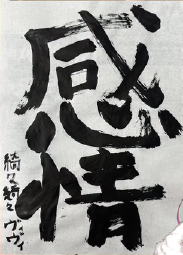 感情
綺々羅々ヴィヴィ